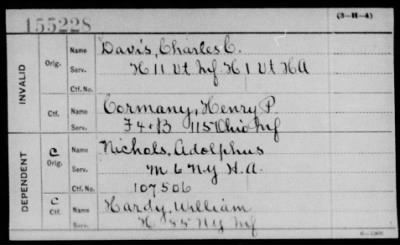 155228
(3-H-4)
INVALID
Orig.
Name Davis, Charles C.
Serv. H 11 Vt Inf H 1 Vt HA
Ctf. No.
Ctf.
Name Cormany, Henry P.
Serv. F 4 & B 115 Ohio Inf
DEPENDENT
C Orig.
Name Nichols, Adolphus
Serv. M 6 N.Y. H.A.
Ctf. No. 107506
C Ctf.
Name Hardy, William
Serv. H. 55 Ny Inf